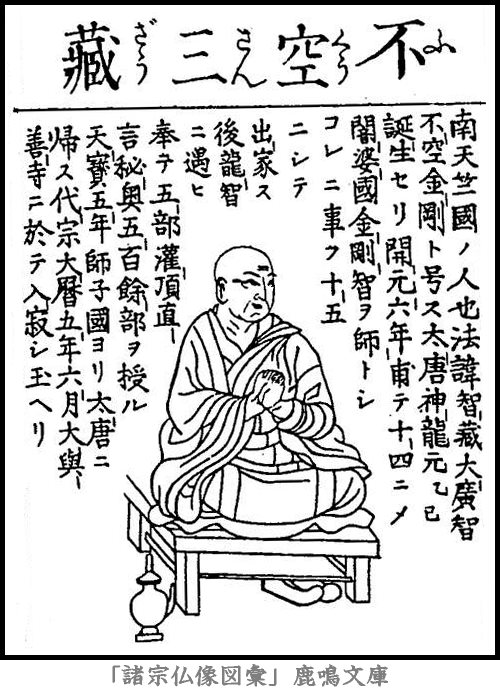 不空三藏
ふくうさんざう
南天竺國ノ人也法諱智藏大廣智
不空金剛ト号ス太唐神龍元乙巳
誕生セリ開元六年甫テ十四ニメ
闍婆國金剛智ヲ師トシ
コレニ事フ十五
ニシテ
出家ス
後龍智
ニ遇ヒ
奉テ五部灌頂直一
言秘奥五百餘部ヲ授ル
天寳五年師子國ヨリ太唐ニ
帰ス代宗大暦五年六月大興一
善寺ニ於テ入寂シ玉ヘリ
「諸宗仏像図彙」鹿鳴文庫